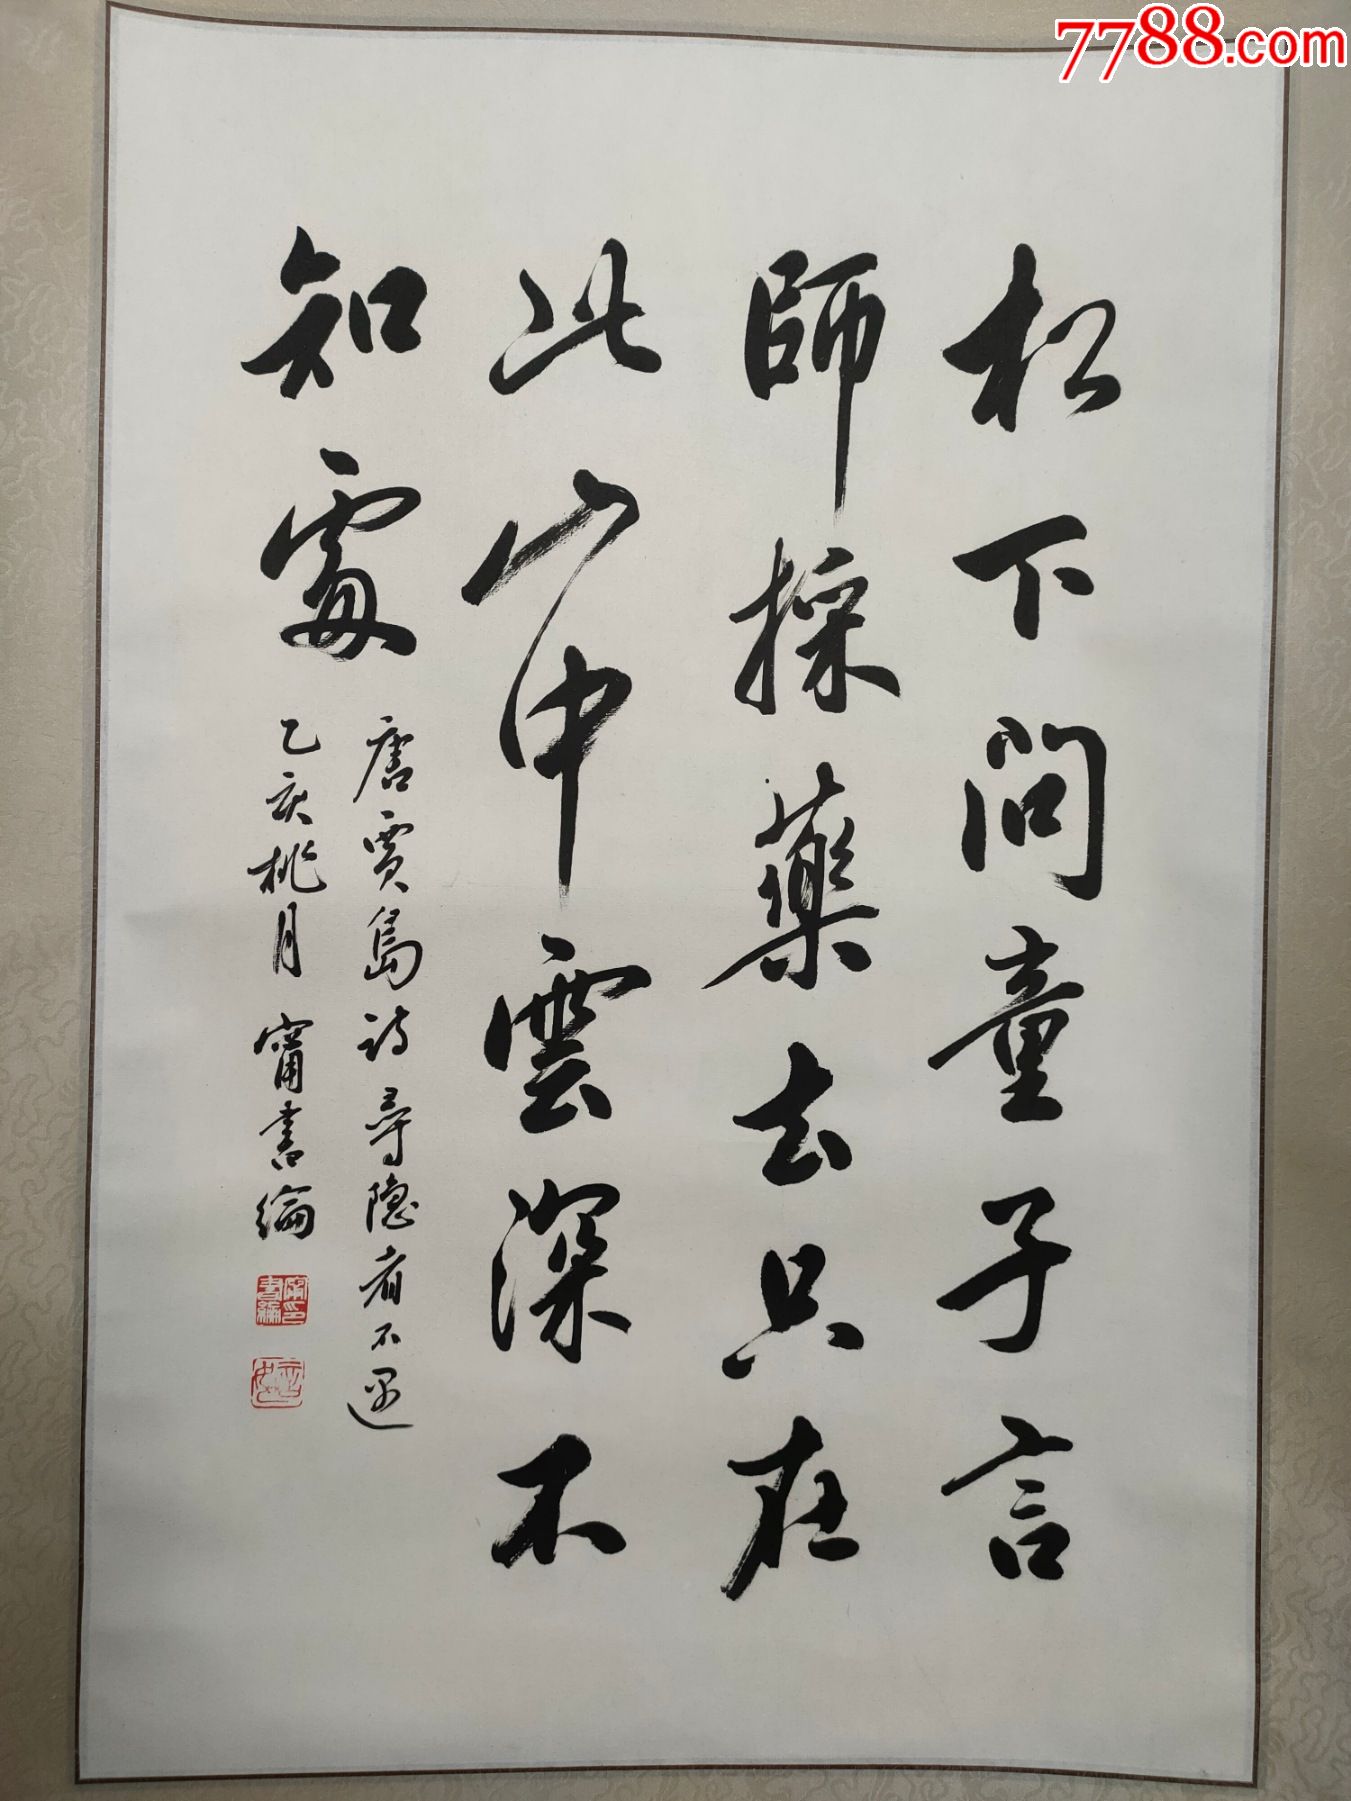 7788.com
松下問童子言
師採藥去只在
此山中雲深不
知處
唐賈島詩尋隐者不遇
乙亥桃月甯書綸
甯書綸印